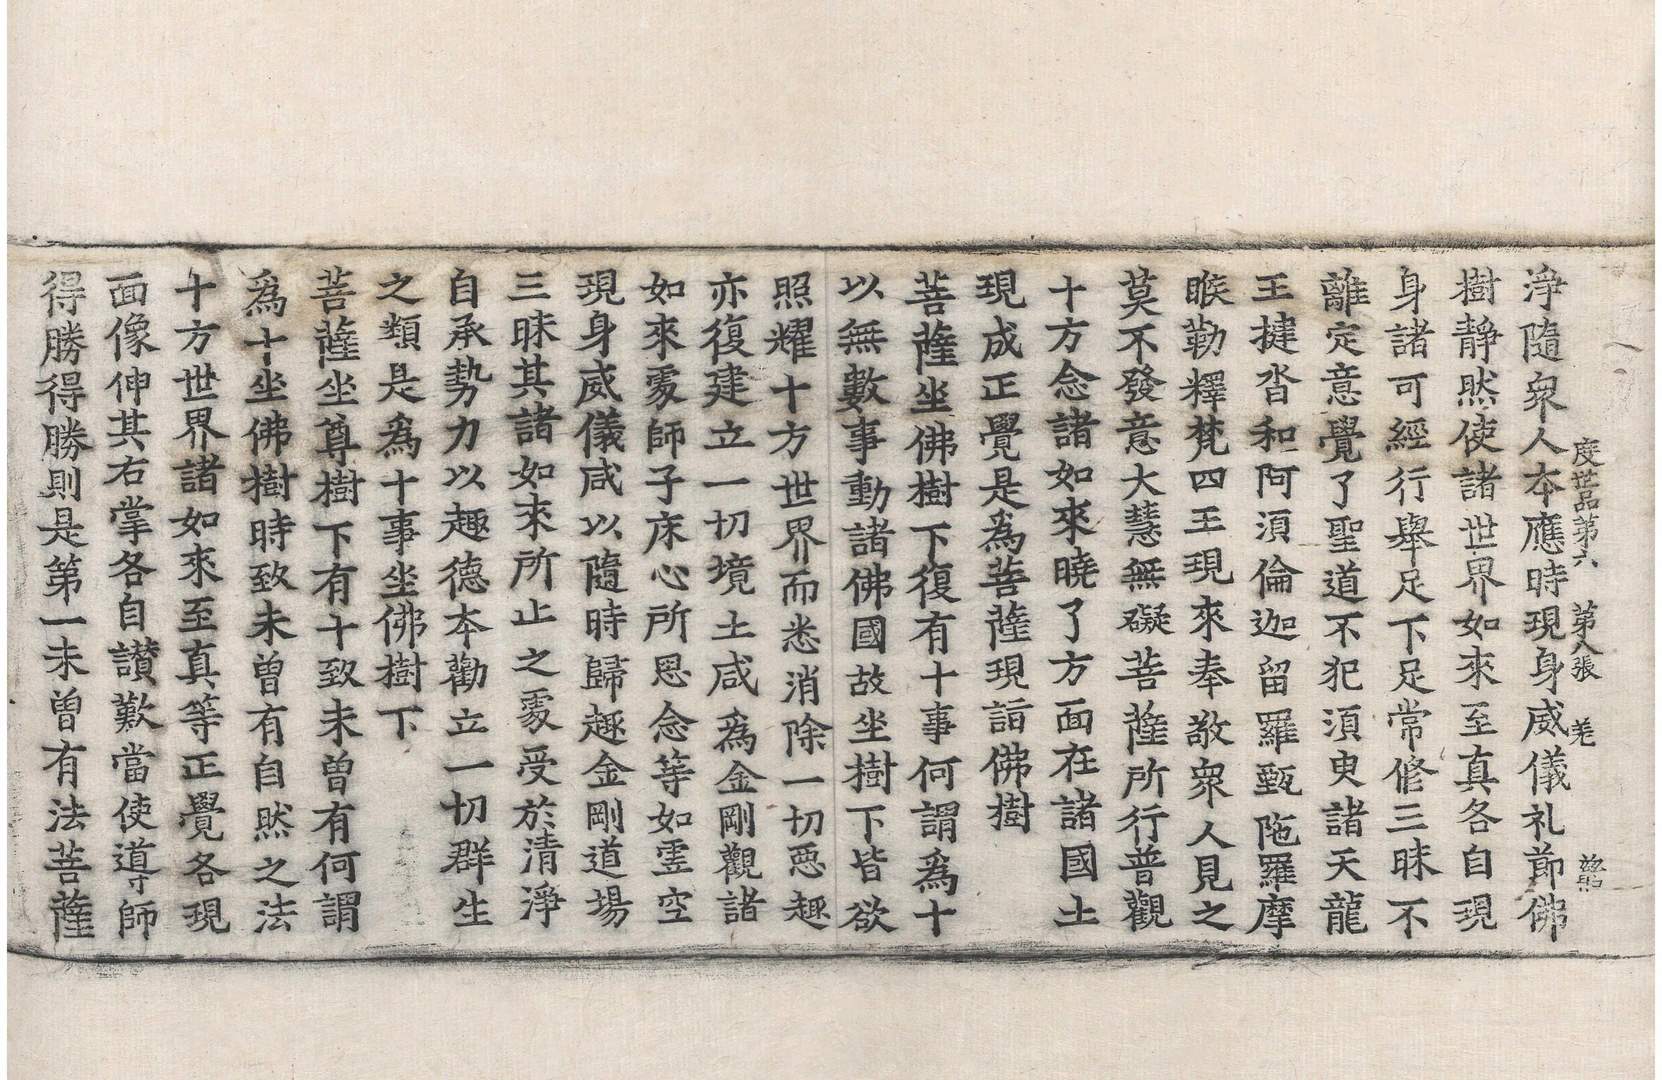 度世品第六　第八張　羌
淨隨衆人本應時現身威儀礼節佛
樹靜然使諸世界如來至真各自現
身諸可經行舉足下足常修三昧不
離定意覺了聖道不犯須臾諸天龍
王揵沓和阿須倫迦留羅甄陁羅摩
睺勒釋梵四王現來奉敬衆人見之
莫不發意大慧無礙菩薩所行普觀
十方念諸如來曉了方面在諸國土
現成正覺是爲菩薩現詣佛樹
菩薩坐佛樹下復有十事何謂爲十
以無數事動諸佛國故坐樹下皆欲
照耀十方世界而悉消除一切惡趣
亦復建立一切境土咸爲金剛觀諸
如來䖏師子床心所思念等如虛空
現身威儀咸以隨時歸趣金剛道場
三昧其諸如來所止之䖏受於清淨
自承勢力以趣德本勸立一切群生
之類是爲十事坐佛樹下
菩薩坐尊樹下有十致未曾有何謂
爲十坐佛樹時致未曾有自然之法
十方世界諸如來至真等正覺各現
面像伸其右掌各自讃歎當使導師
得勝得勝則是第一未曾有法菩薩